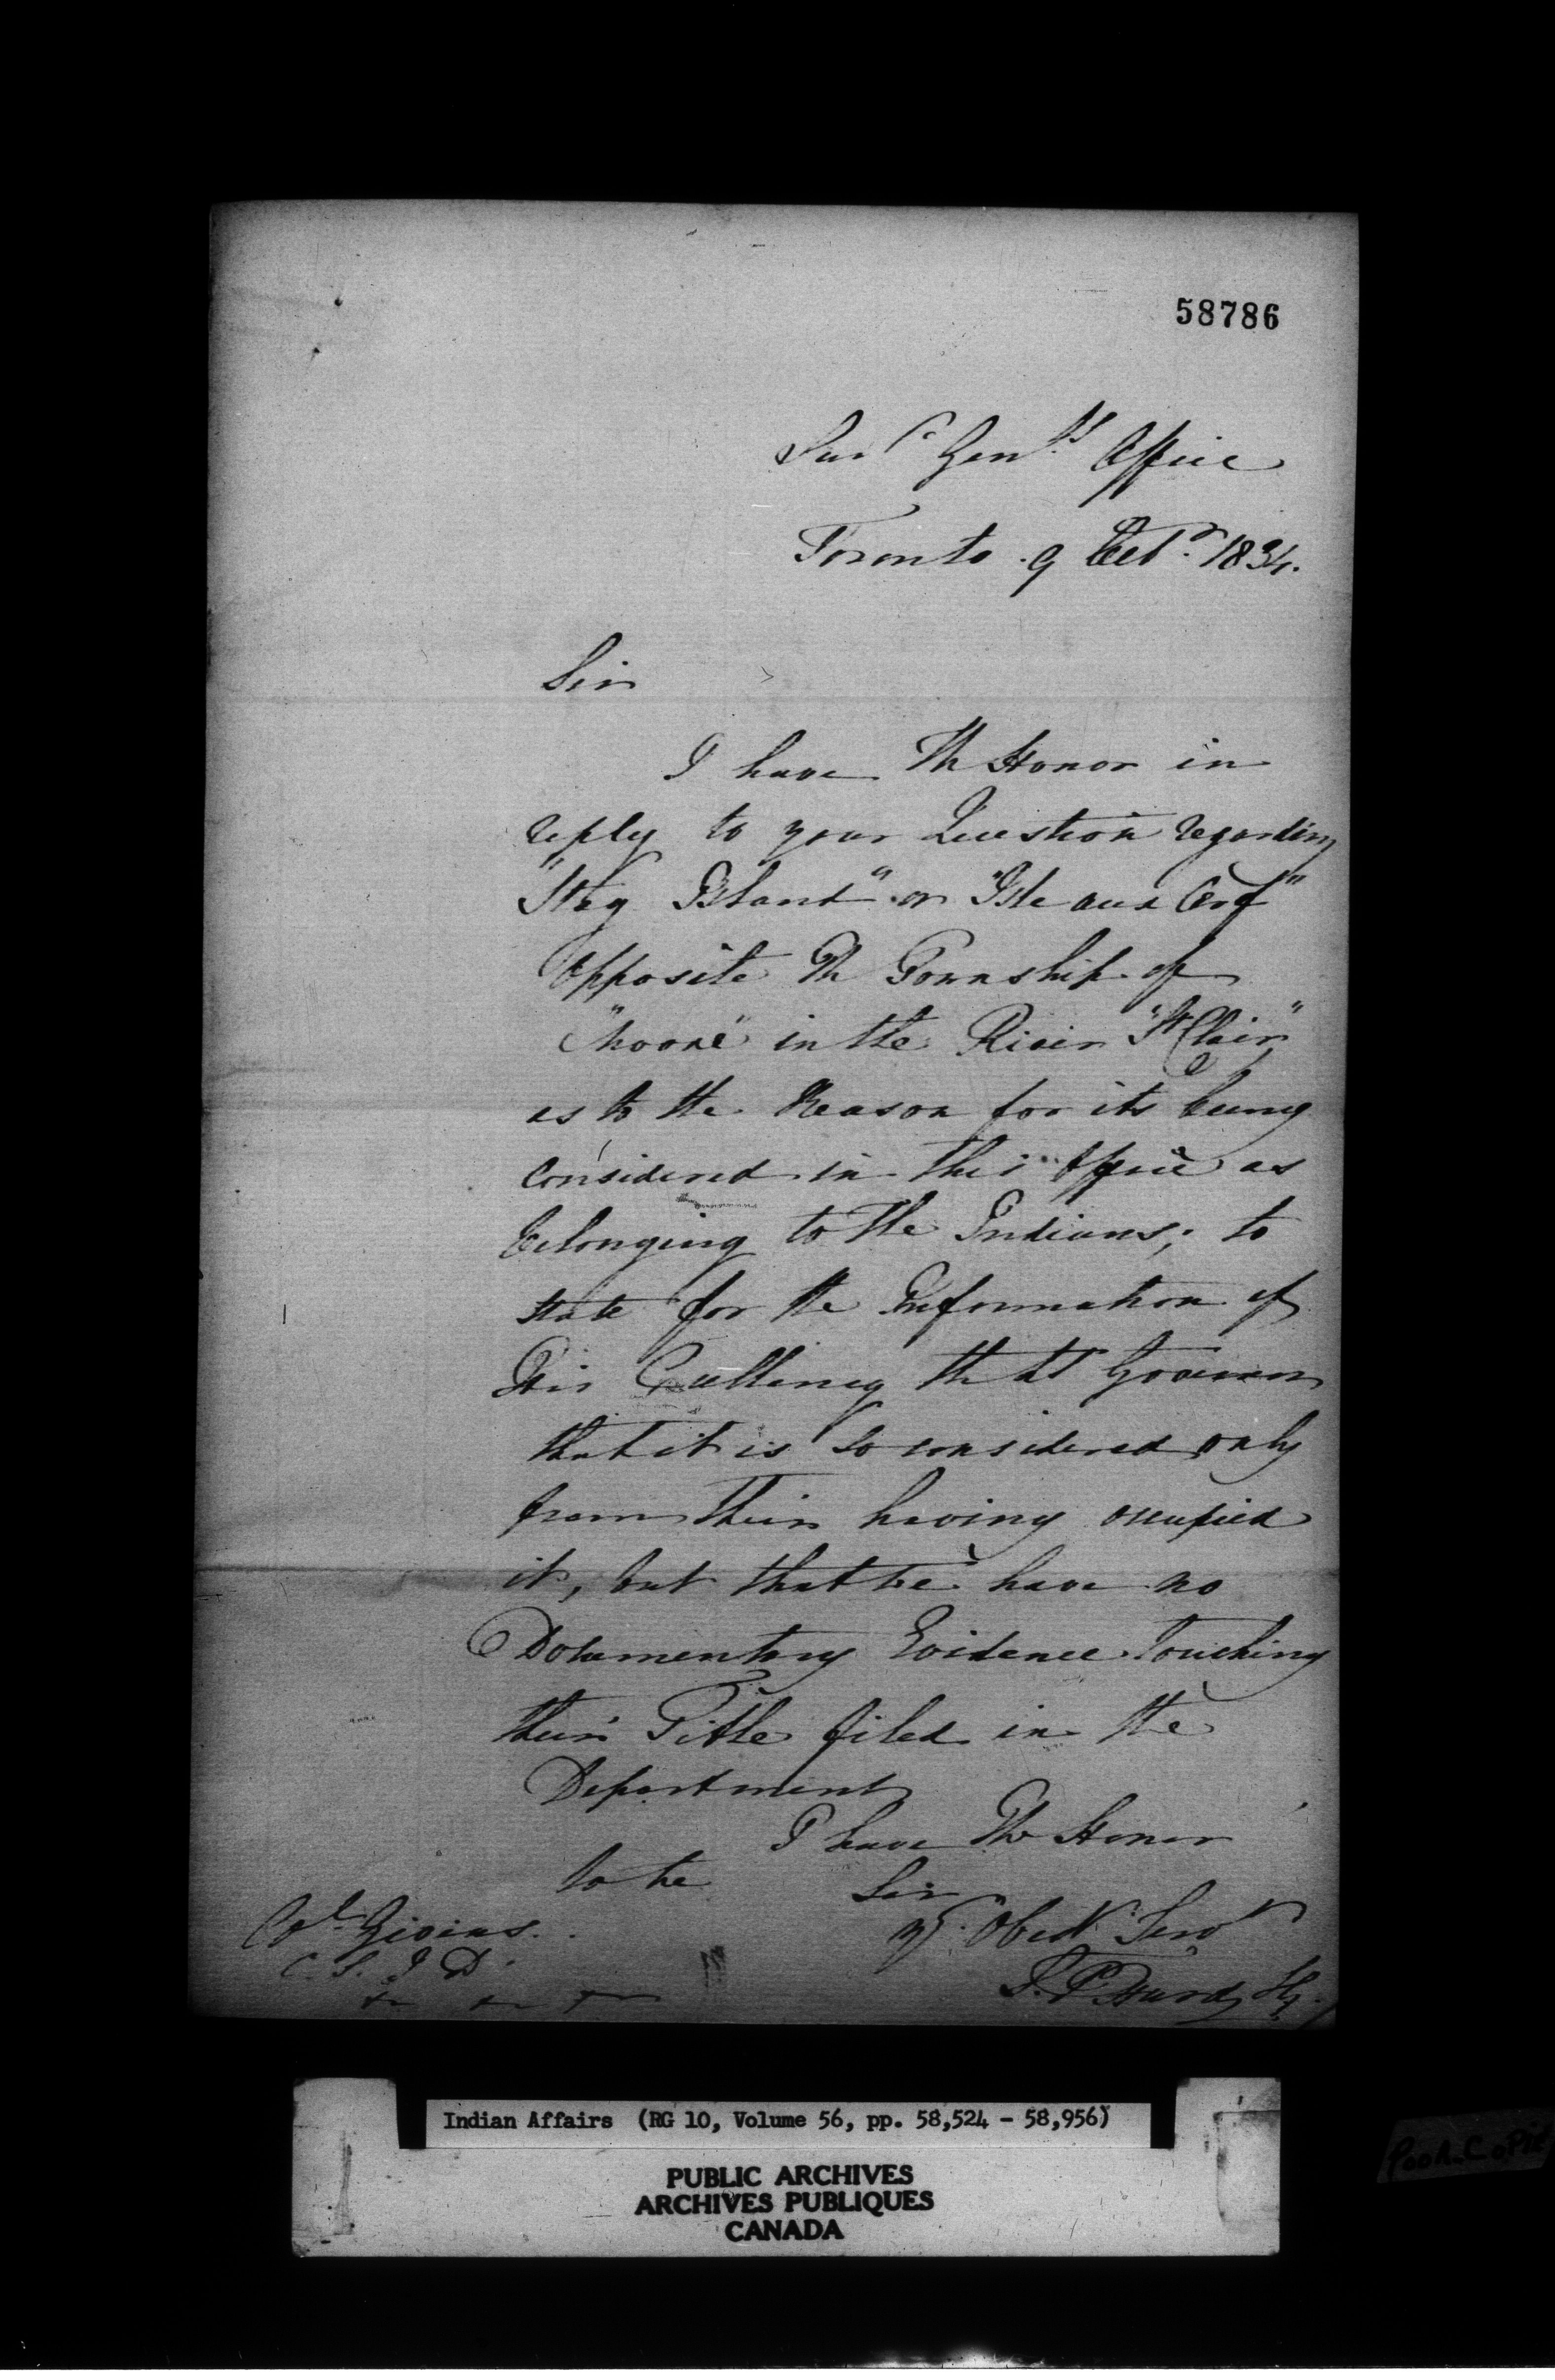 58786
Surr Genls Office
Toronto 9 Octr 1834.
Sir
I have the Honor in
reply to your Question regarding
"Stag Island" or "Isle aux Cerf"
Opposite the Township of
"Moore" in the River "St Clair"
as to the Reason for its being
Considered in this Office as
belonging to the Indians; to
state for the Information of
His Excellency the Lt Governor
that it is so considered only
from their having occupied
it, but that we have no
Documentary Evidence Touching
their Title filed in the
Department
I have the Honor
to be
Sir
Yr Obedt Servt
S. P. Hurd SG.
Col. Givins.
C. S. I D.
Indian Affairs (RG 10, Volume 56, pp. 58,524 - 58,956)
PUBLIC ARCHIVES
ARCHIVES PUBLIQUES
CANADA
Poor Copie